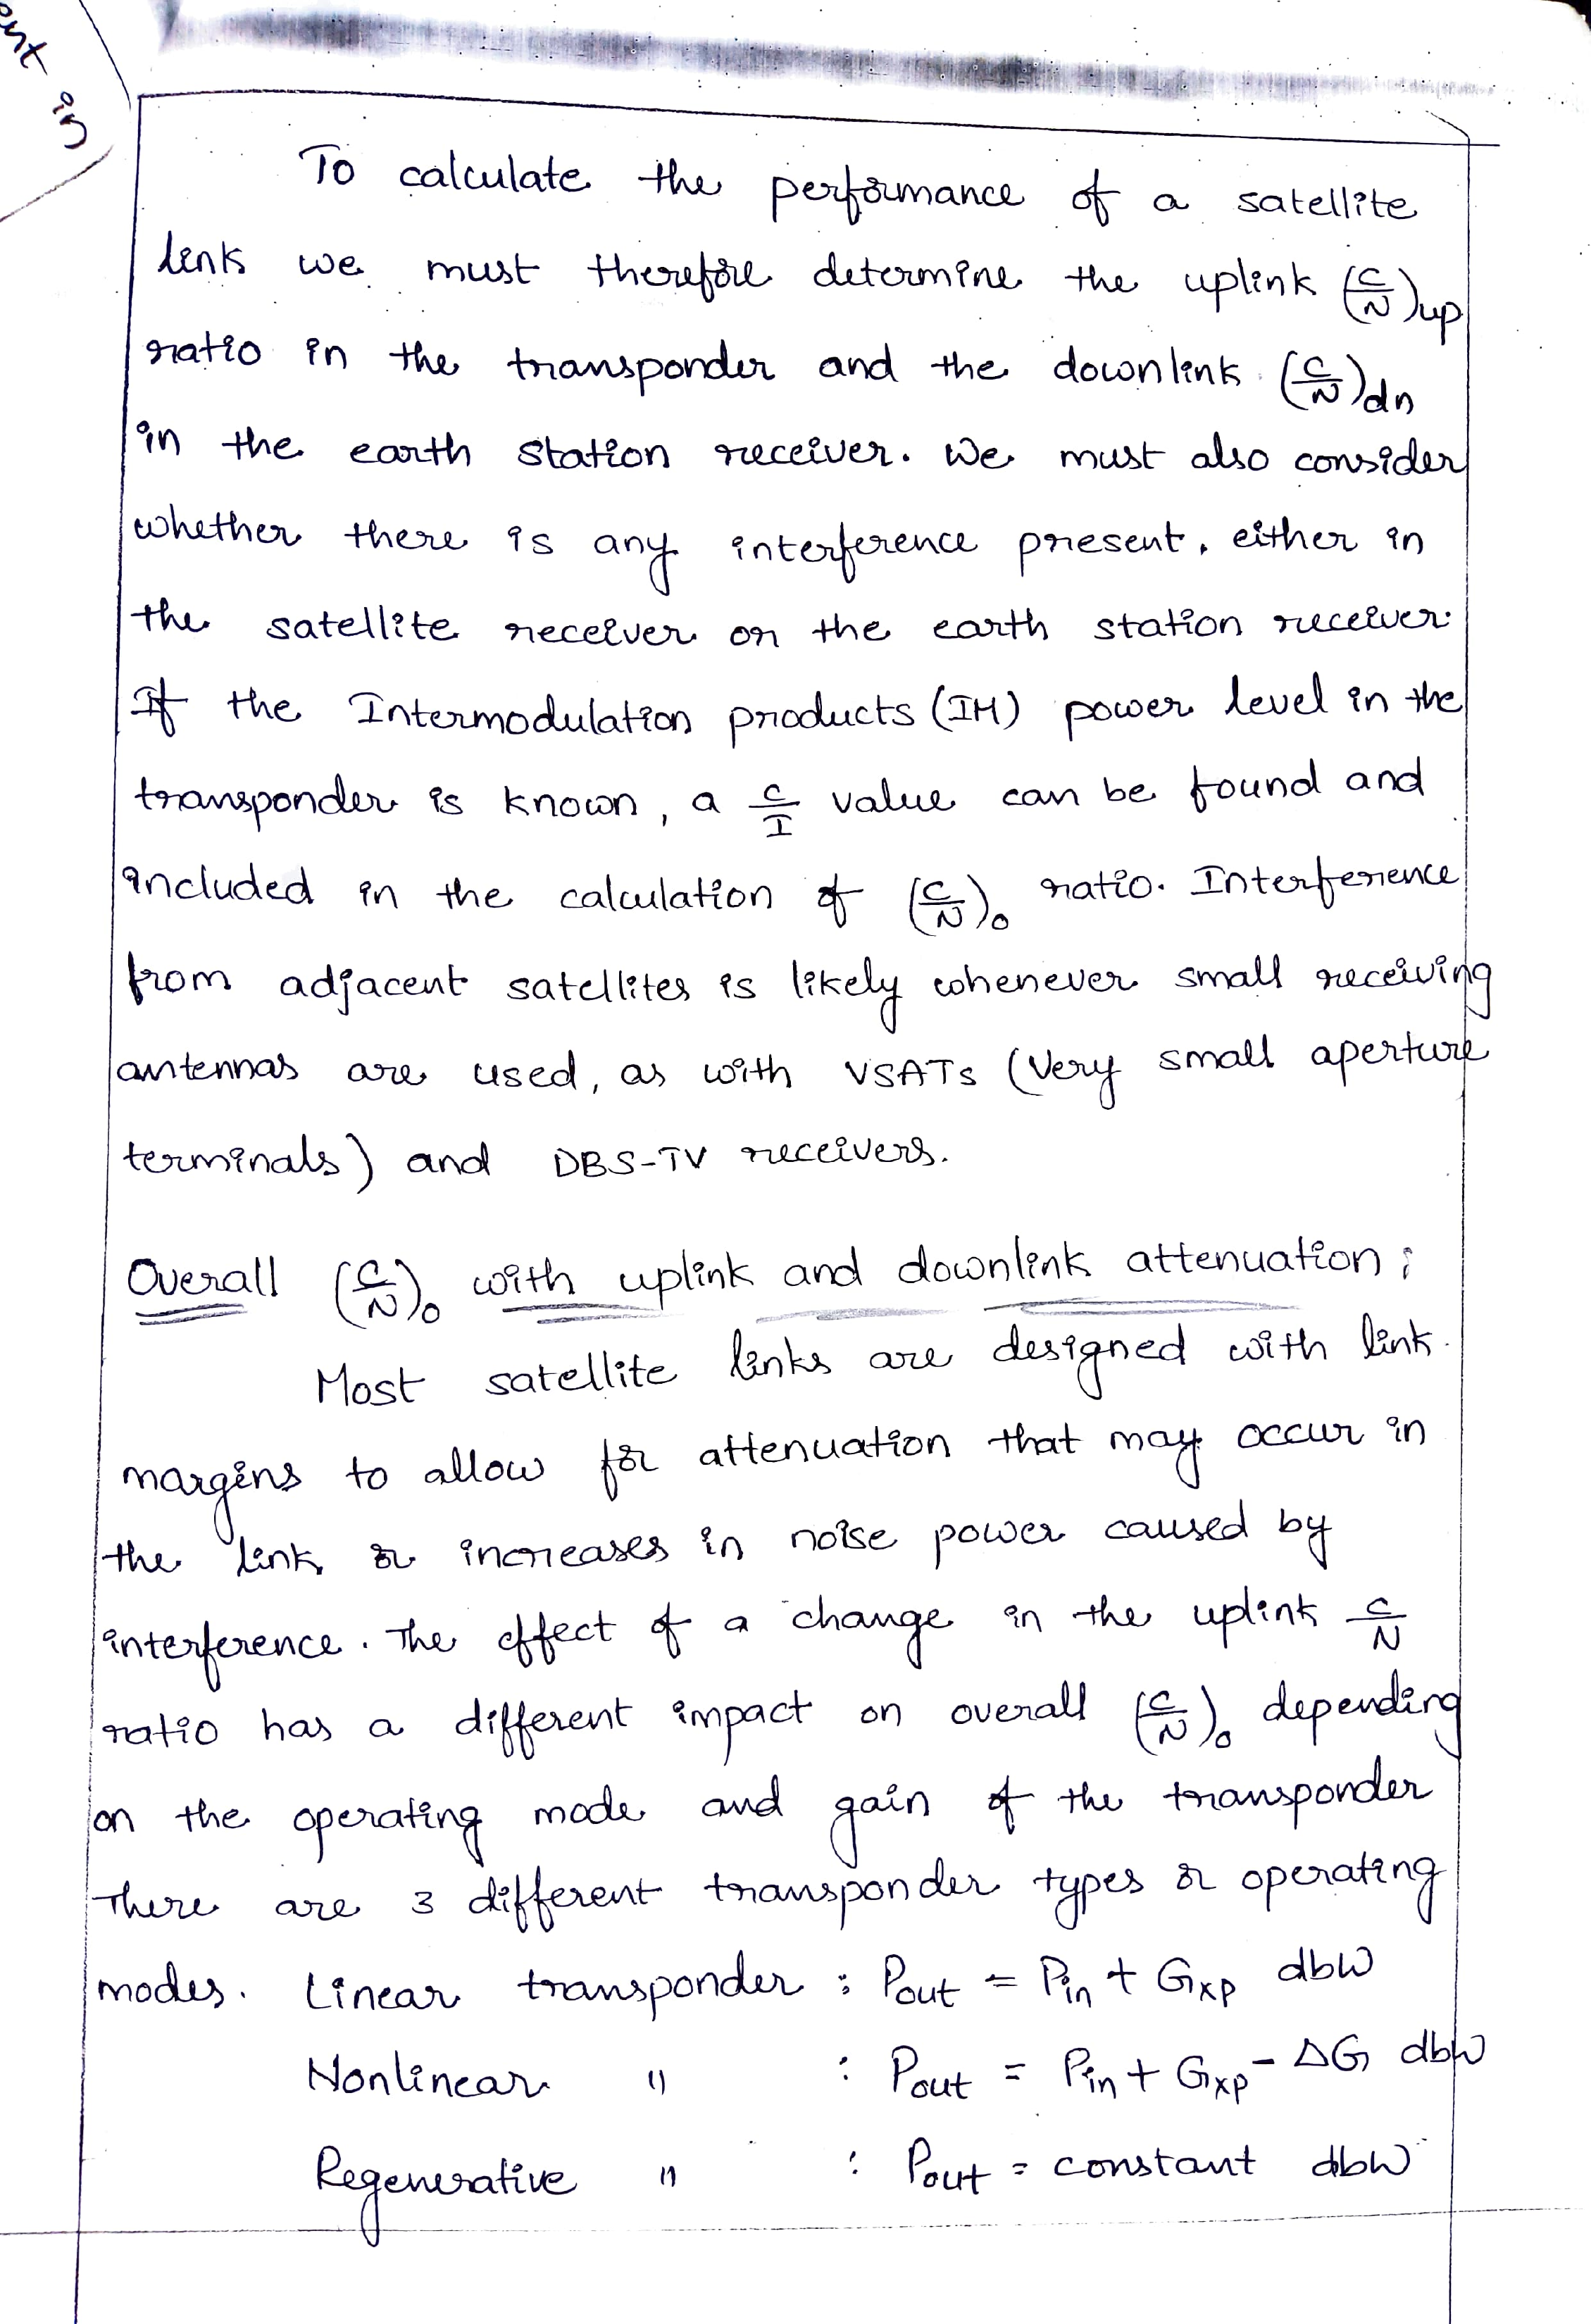 ent in
To calculate the performance of a satellite
link we must therefore determine the uplink (C/N)up
ratio in the transponder and the downlink (C/N)dn
in the earth station receiver. We must also consider
whether there is any interference present, either in
the satellite receiver or the earth station receiver.
If the Intermodulation products (IM) power level in the
transponder is known, a C/I value can be found and
included in the calculation of (C/N)o ratio. Interference
from adjacent satellites is likely whenever small receiving
antennas are used, as with VSATs (Very small aperture
terminals) and DBS-TV receivers.
Overall (C/N)o with uplink and downlink attenuation:
Most satellite links are designed with link
margins to allow for attenuation that may occur in
the link or increases in noise power caused by
interference. The effect of a change in the uplink C/N
ratio has a different impact on overall (C/N)o depending
on the operating mode and gain of the transponder
There are 3 different transponder types or operating
modes. Linear transponder : Pout = Pin + Gxp dbW
Nonlinear " : Pout = Pin + Gxp - ΔG dbW
Regenerative " : Pout = constant dbW